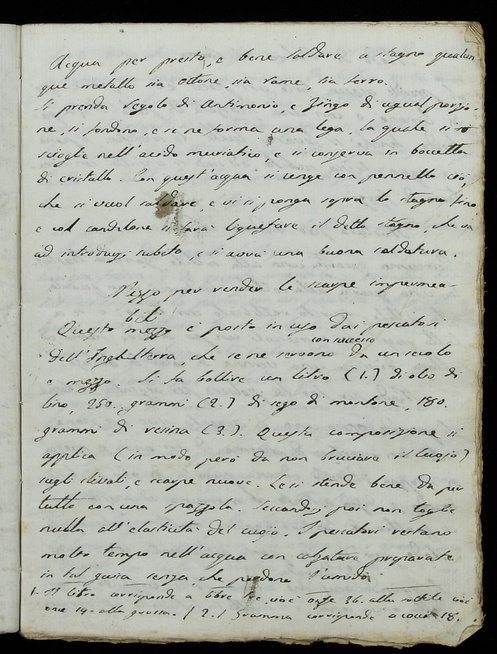 Acqua per presto, e bene saldare a stagno qualun-
que metallo sia ottone, sia rame, sia ferro.
Si prenda Regolo di Antimonio, e Zingo di ugual porzio-
ne, si fondono, e se ne forma una lega, la quale si
scioglie nell'acido muriatico, e si conserva in boccetta
di cristallo. Con quest'acqua si unge con pennello ciò,
che si vuol saldare, e vi si ponga sopra lo stagno fino
e col candelone si farà liquefare il detto stagno, che va
ad introdursi subito, e si avrà una buona saldatura.
Mezzo per render le scarpe impermea-
bili
Questo mezzo è posto in uso dai pescatori
con successo
dell'Inghilterra che se ne servono da un secolo
e mezzo. Si fa bollire un litro (1.) di olio di
lino, 250. grammi (2.) di sego di montone, 180.
grammi di resina (3.). Questa composizione si
applica (in modo però da non bruciare il cuojo)
sugli stivali, e scarpe nuove. Le si stende bene da per
tutto con una spazzola. Seccandosi poi non toglie
nulla all'elasticità del cuojo. I pescatori restano
molto tempo nell'acqua con calzature preparate
in tal guisa senza che perdono l'umido
1. Il litro corrisponde a libre
once 14. alla grossa. (2.) Gramma corrisponde a 18.